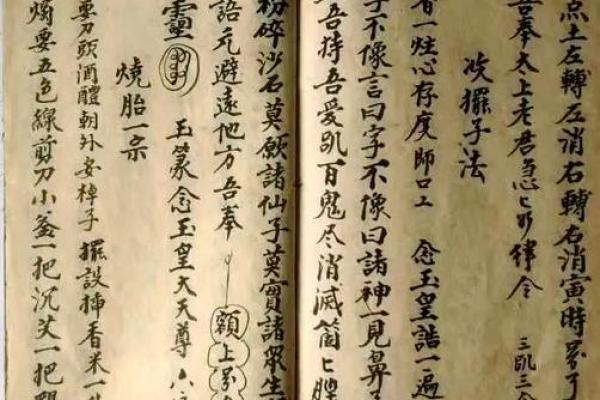 点土左轉左消右轉右消寅時
吾奉太上老君急匕如律令 三
法
香一炷心存度師口工 念玉皇誥一遍
字不像言曰字不像曰諸神一見鼻
吾持吾愛 百鬼尽消滅箇匕
粉碎沙石莫 諸仙子莫 諸眾生
語 避遠他方吾奉 額上
靈 玉篆念玉皇大天尊六
燒胎一宗
要刀頭酒醴朝外安棹子 擺設插香米一
燭要五色線剪刀小釜一把沉艾一把